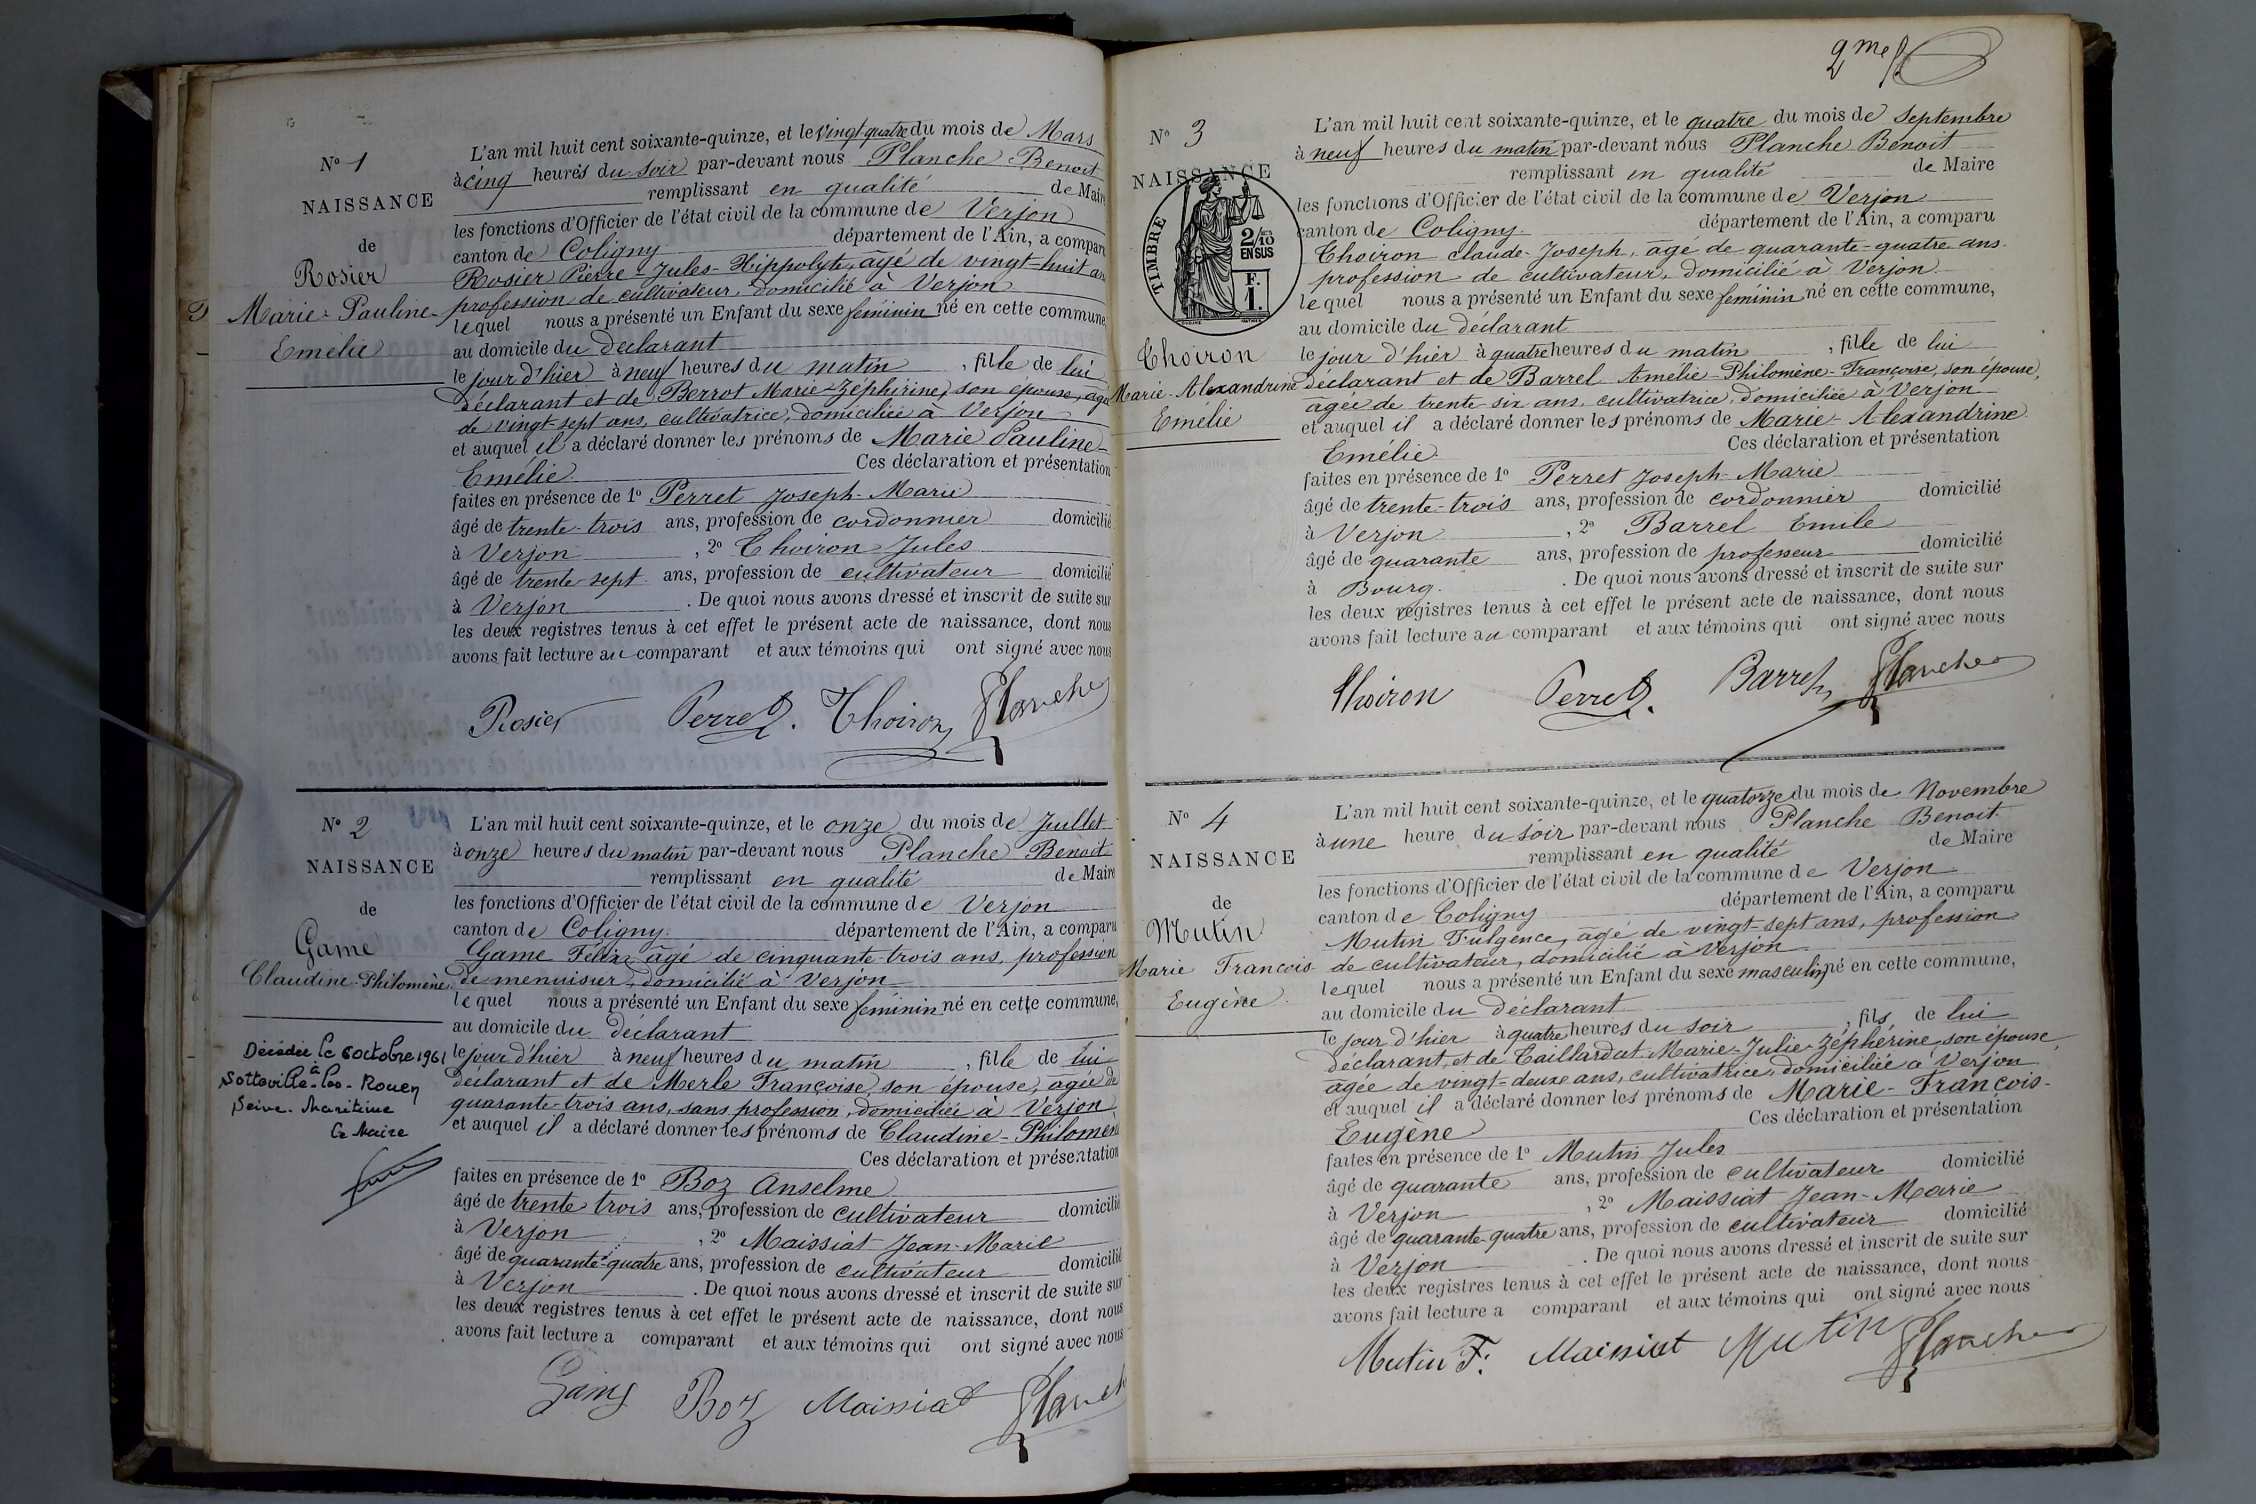 N° 1
NAISSANCE
de
Rosier
Marie-Pauline-
Emélie
L'an mil huit cent soixante-quinze, et le vingt quatre du mois de Mars
à cinq heures du soir par-devant nous Planche Benoit
remplissant en qualité de Maire
les fonctions d'Officier de l'état civil de la commune de Verjon
canton de Coligny département de l'Ain, a comparu
Rosier Pierre-Jules-Hippolyte, âgé de vingt-huit ans
profession de cultivateur, domicilié à Verjon
lequel nous a présenté un Enfant du sexe féminin né en cette commune
au domicile du déclarant
le jour d'hier à neuf heures du matin, fille de lui
déclarant et de Berrot Marie-Zéphirine, son épouse, agée
de vingt-sept ans, cultivatrice, domiciliée à Verjon
et auquel il a déclaré donner les prénoms de Marie Pauline-
Emélie Ces déclaration et présentation
faites en présence de 1° Perret Joseph-Marie
âgé de trente-trois ans, profession de cordonnier domicilié
à Verjon, 2° Choiron Jules
âgé de trente-sept ans, profession de cultivateur domicilié
à Verjon. De quoi nous avons dressé et inscrit de suite sur
les deux registres tenus à cet effet le présent acte de naissance, dont nous
avons fait lecture au comparant et aux témoins qui ont signé avec nous
Rosier Perret. Choiron Planche
N° 2
NAISSANCE
de
Game
Claudine-Philomène
Décédée le 6 octobre 1961
à
Sotteville-les-Rouen
Seine-Maritime
Le Maire
L'an mil huit cent soixante-quinze, et le onze du mois de Juillet
à onze heures du matin par-devant nous Planche Benoit
remplissant en qualité de Maire
les fonctions d'Officier de l'état civil de la commune de Verjon
canton de Coligny. département de l'Ain, a comparu
Game Félix âgé de cinquante-trois ans, profession
de menuisier, domicilié à Verjon
lequel nous a présenté un Enfant du sexe féminin né en cette commune,
au domicile du déclarant
le jour d'hier à neuf heures du matin, fille de lui
déclarant et de Merle Françoise, son épouse, agée de
quarante-trois ans, sans profession, domiciliée à Verjon
et auquel il a déclaré donner les prénoms de Claudine-Philomène
Ces déclaration et présentation
faites en présence de 1° Boz Anselme
âgé de trente trois ans, profession de cultivateur domicilié
à Verjon, 2° Maissiat Jean-Marie
âgé de quarante-quatre ans, profession de cultivateur domicilié
à Verjon. De quoi nous avons dressé et inscrit de suite sur
les deux registres tenus à cet effet le présent acte de naissance, dont nous
avons fait lecture a comparant et aux témoins qui ont signé avec nous
Game Boz Maissiat Planche
2me
N° 3
NAISSANCE
TIMBRE
2/10
EN SUS
F.
1.
Choiron
Marie-Alexandrine
Emélie
L'an mil huit cent soixante-quinze, et le quatre du mois de Septembre
à neuf heures du matin par-devant nous Planche Benoit
remplissant en qualité de Maire
les fonctions d'Officier de l'état civil de la commune de Verjon
canton de Coligny. département de l'Ain, a comparu
Choiron Claude-Joseph, agé de quarante-quatre ans.
profession de cultivateur, domicilié à Verjon
lequel nous a présenté un Enfant du sexe féminin né en cette commune,
au domicile du déclarant
le jour d'hier à quatre heures du matin, fille de lui
déclarant et de Barrel Amélie-Philomène-Françoise, son épouse,
agée de trente-six ans, cultivatrice, domiciliée à Verjon
et auquel il a déclaré donner les prénoms de Marie-Alexandrine
Emélie. Ces déclaration et présentation
faites en présence de 1° Perret Joseph-Marie
âgé de trente-trois ans, profession de cordonnier domicilié
à Verjon, 2° Barrel Emile
âgé de quarante ans, profession de professeur domicilié
à Bourg. De quoi nous avons dressé et inscrit de suite sur
les deux registres tenus à cet effet le présent acte de naissance, dont nous
avons fait lecture au comparant et aux témoins qui ont signé avec nous
Choiron Perret. Barrel Planche
N° 4
NAISSANCE
de
Mutin
Marie François
Eugène
L'an mil huit cent soixante-quinze, et le quatorze du mois de Novembre
à une heure du soir par-devant nous Planche Benoit
remplissant en qualité de Maire
les fonctions d'Officier de l'état civil de la commune de Verjon
canton de Coligny département de l'Ain, a comparu
Mutin Fulgence, âgé de vingt-sept ans, profession
de cultivateur, domicilié à Verjon
lequel nous a présenté un Enfant du sexe masculin né en cette commune,
au domicile du déclarant
le jour d'hier à quatre heures du soir, fils de lui
déclarant et de Caillardat Marie-Julie-Zéphérine son épouse,
agée de vingt-deux ans, cultivatrice, domiciliée à Verjon
et auquel il a déclaré donner les prénoms de Marie-François-
Eugène Ces déclaration et présentation
faites en présence de 1° Mutin Jules
âgé de quarante ans, profession de cultivateur domicilié
à Verjon, 2° Maissiat Jean-Marie
âgé de quarante-quatre ans, profession de cultivateur domicilié
à Verjon. De quoi nous avons dressé et inscrit de suite sur
les deux registres tenus à cet effet le présent acte de naissance, dont nous
avons fait lecture a comparant et aux témoins qui ont signé avec nous
Mutin F. Maissiat Mutin Planche